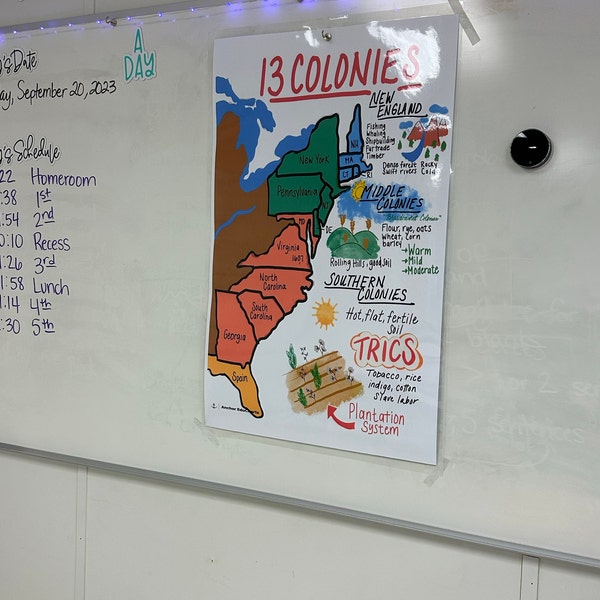 A
DAY
Date
September 20, 2023
Schedule
22 Homeroom
:38 1st
:54 2nd
0:10 Recess
:26 3rd
:58 Lunch
:14 4th
:30 5th
13 COLONIES
NEW
ENGLAND
Fishing
Whaling
Shipbuilding
Fur trade
Timber
Dense forest Rocky
Swift rivers Cold
NH
MA
CT
RI
New York
Pennsylvania
NJ
MD
DE
Virginia
1607
North
Carolina
South
Carolina
Georgia
Spain
MIDDLE
COLONIES
"Breadbasket Colonies"
Flour, rye, oats
wheat, corn
barley
→Warm
→Mild
→Moderate
Rolling Hills, good soil
SOUTHERN
COLONIES
Hot, flat, fertile
soil
TRICS
Tobacco, rice
indigo, cotton
slave labor
Plantation
System
Anchor